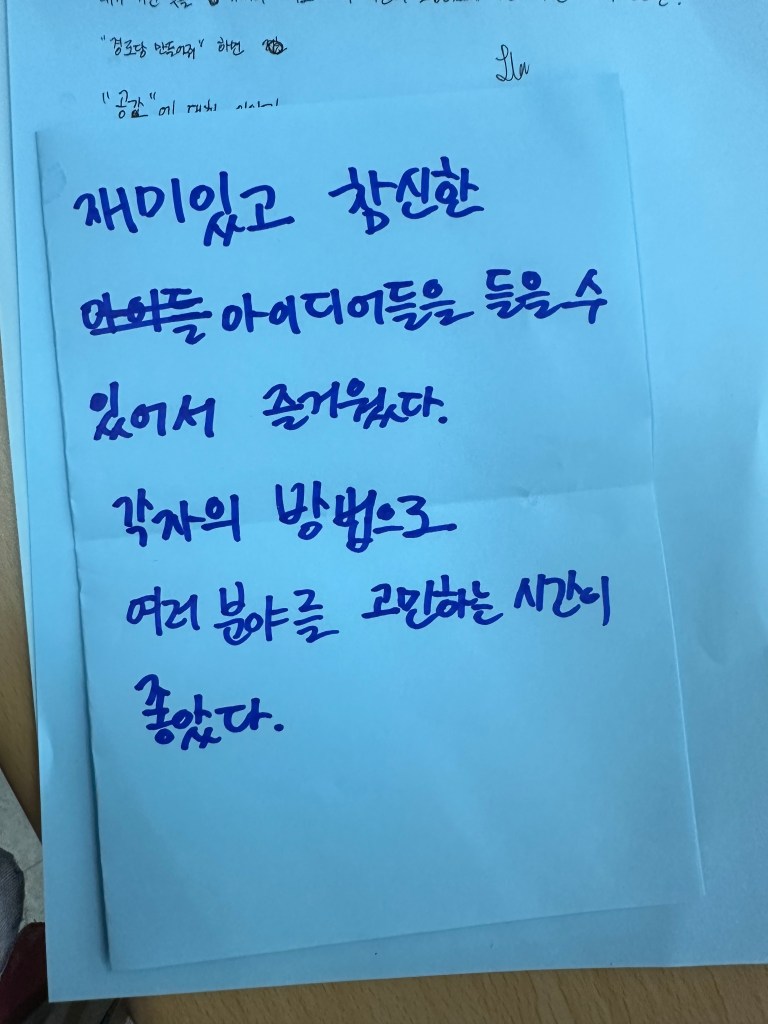 "경로당 만들어줘" 하면
"공간"에 대한
재미있고 참신한
아이들 아이디어들을 들을 수
있어서 즐거웠다.
각자의 방법으로
여러 분야를 고민하는 시간이
좋았다.